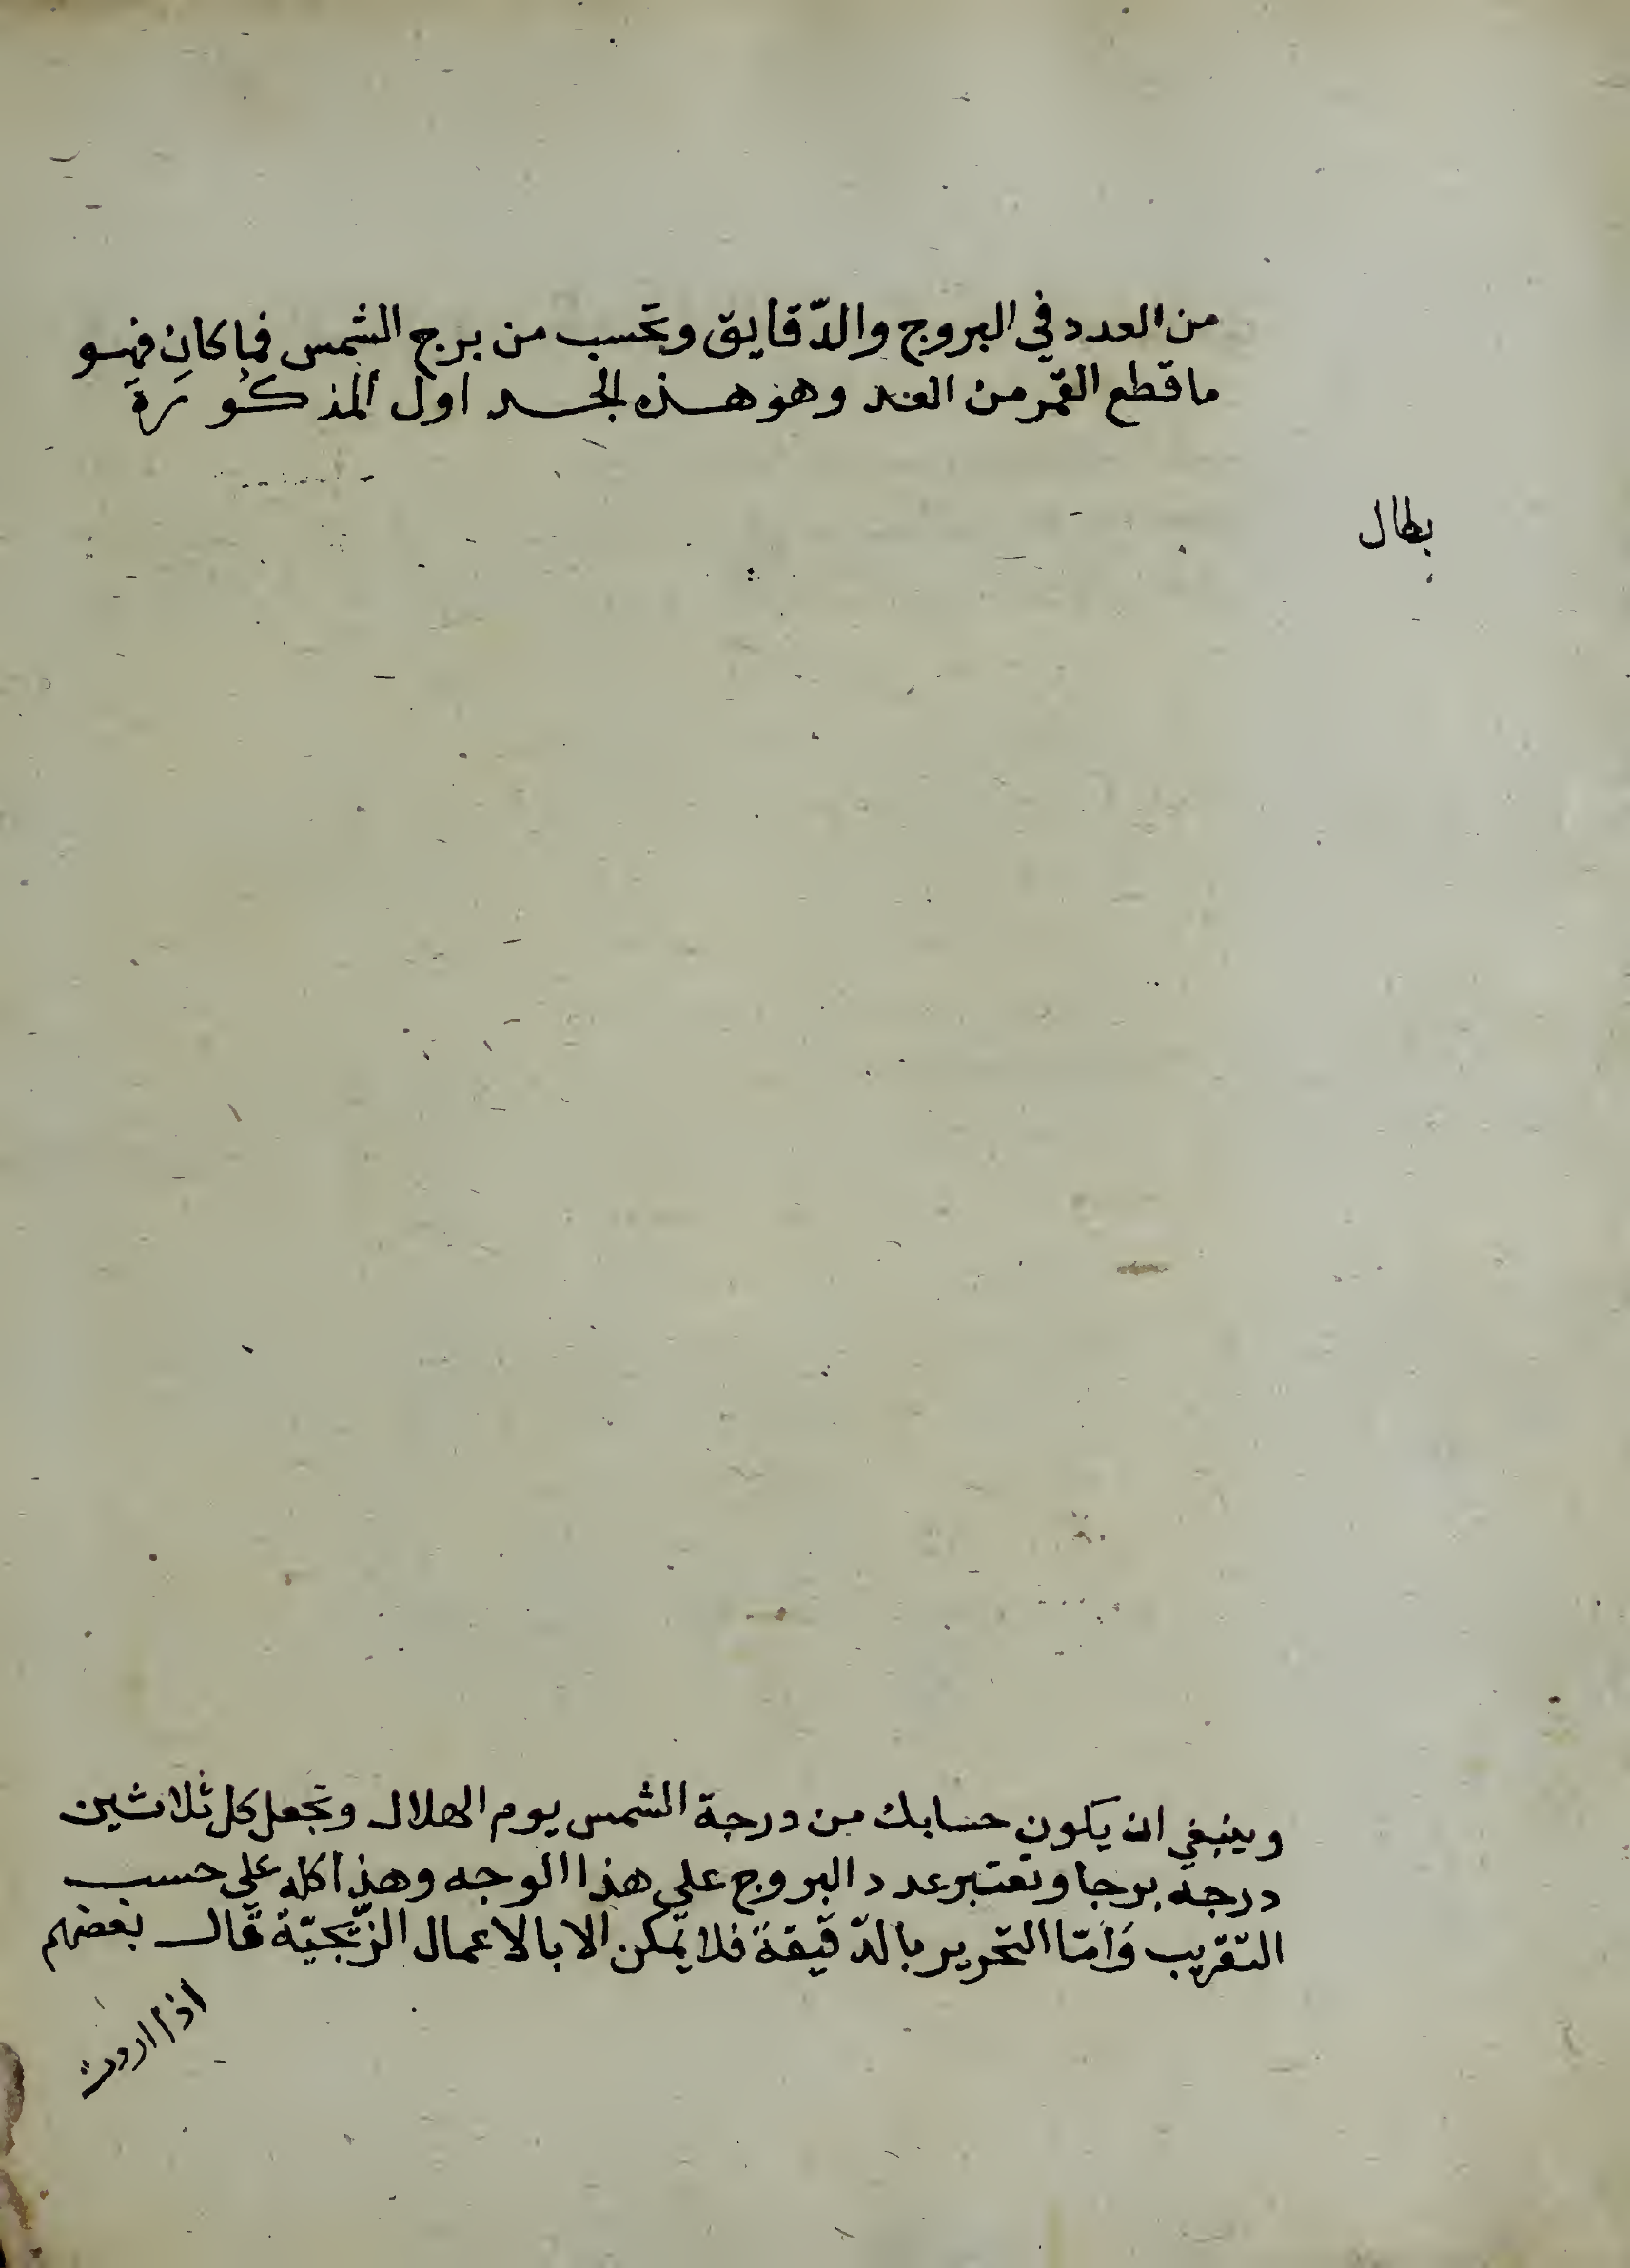 من العدد في البروج والدّقايق وتحسب من برج الشمس فما كان فهو
ما قطع القمر من العدد وهو هذه الجداول المذكورة
بطال
وينبغي ان يكون حسابك من درجة الشمس يوم الهلال وتجعل كل ثلاثين
درجة برجا وتعتبر عدد البروج على هذا الوجه وهذا كله على حسب
التقريب وَامّا التحرير بالدّقيقة فلا يمكن الا بالاعمال الزّيجيّة قال بعضهم
اذا اردت